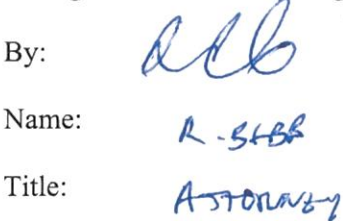 By:
Name: R. BEBB
Title: ATTORNEY